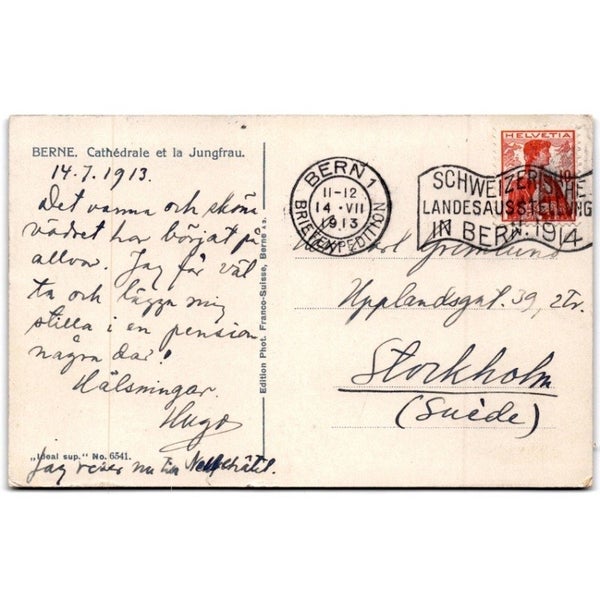 BERNE. Cathédrale et la Jungfrau.
14.7.1913.
Det varma och sköna
vädret har börjat på
allvar. Jag får väl
ta och lägga mig
stilla i en pension
några dar!
Hälsningar.
Hugo
„Ideal sup.“ No. 6541.
Jag reser nu till Neuchâtel.
Edition Phot. Franco-Suisse, Berne
BERN 1
11-12
14.VII
1913
BRIEFEXPEDITION
HELVETIA
10
SCHWEIZERISCHE
LANDESAUSSTELLUNG
IN BERN. 1914
Grimlund
Upplandsgat. 39, 2tr.
Stockholm
(Suède)